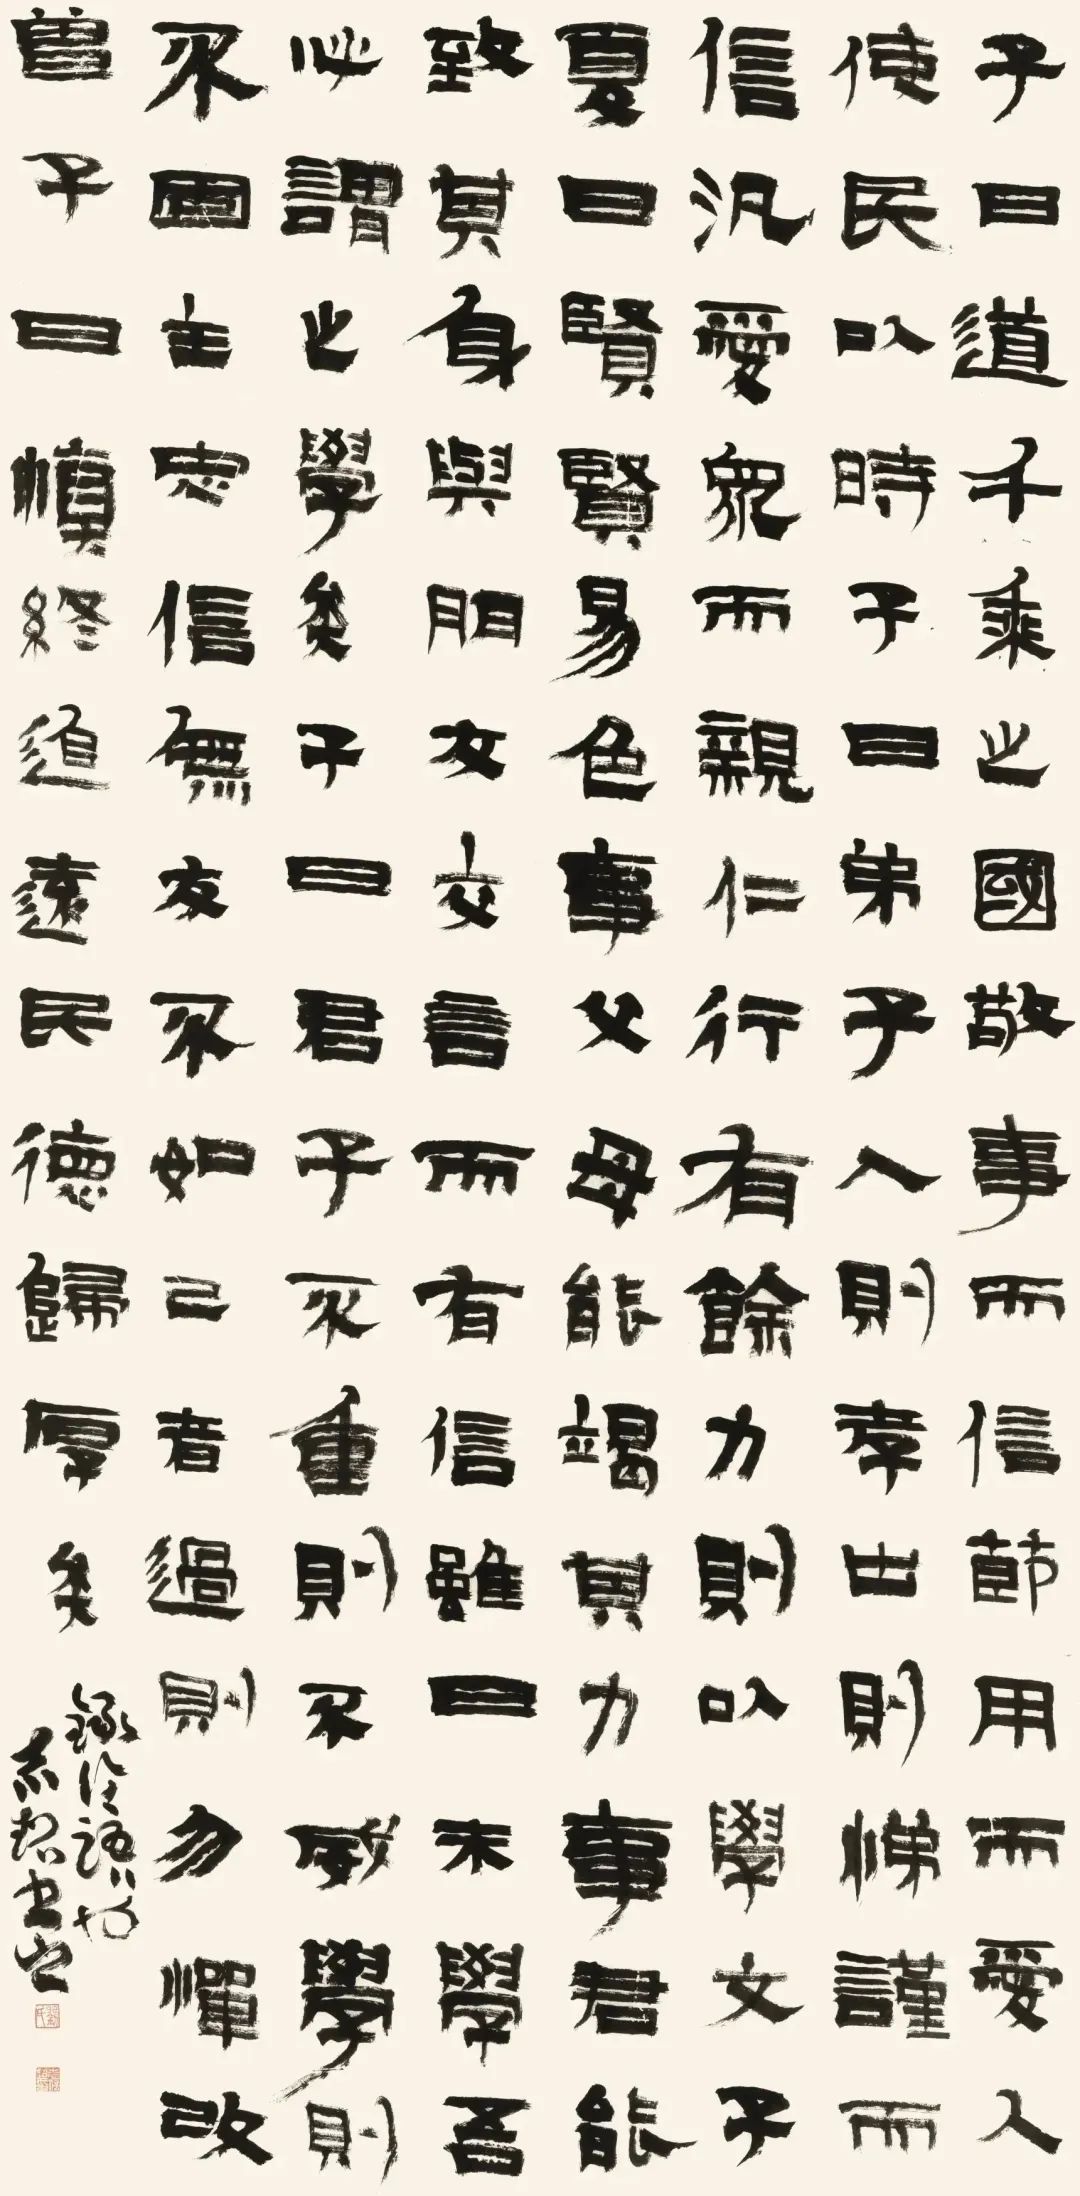 子曰道千乘之國敬事而信節用而愛人
使民以時子曰弟子入則孝出則悌謹而
信汎愛眾而親仁行有餘力則以學文子
夏曰賢賢易色事父母能竭其力事君能
致其身與朋友交言而有信雖曰未學吾
必謂之學矣子曰君子不重則不威學則
不固主忠信無友不如己者過則勿憚改
曾子曰慎終追遠民德歸厚矣
錄論語